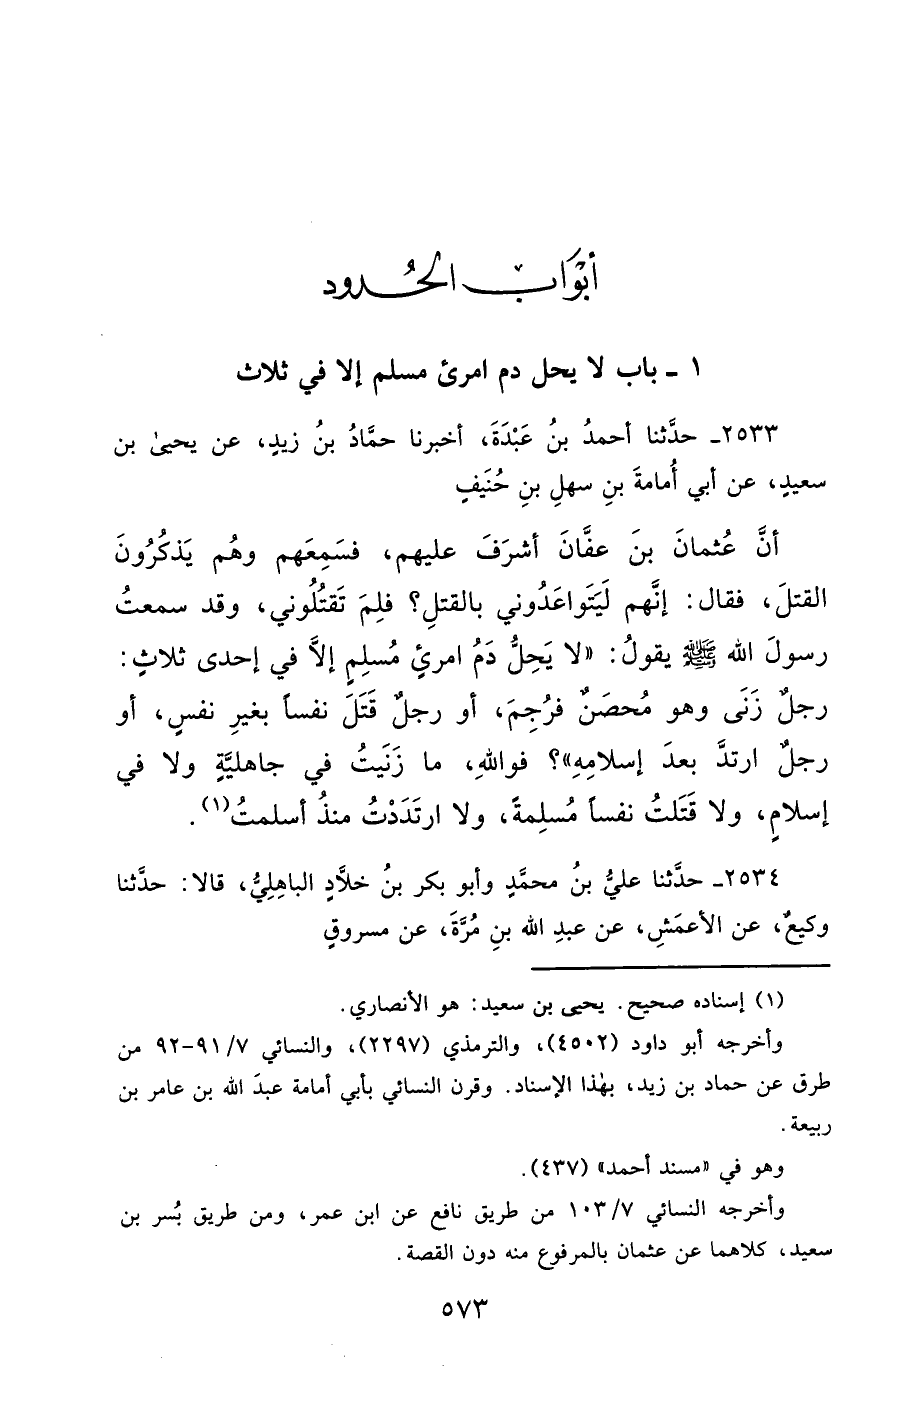 أَبْوَابُ الحُدُود
١ ـ باب لا يحل دم امرئ مسلم إلا في ثلاث
٢٥٣٣ـ حدَّثنا أحمدُ بنُ عَبْدَةَ، أخبرنا حمَّادُ بنُ زيدٍ، عن يحيىٰ بن
سعيدٍ، عن أبي أُمامةَ بنِ سهلِ بنِ حُنَيفٍ
أنَّ عُثمانَ بنَ عفَّانَ أشرَفَ عليهم، فسَمِعَهم وهُم يَذكُرُونَ
القتلَ، فقال: إنَّهم لَيَتَواعَدُوني بالقتلِ؟ فلِمَ تَقتُلُوني، وقد سمعتُ
رسولَ الله ﷺ يقولُ: «لا يَحِلُّ دَمُ امرئٍ مُسلِمٍ إلاَّ في إحدى ثلاثٍ:
رجلٌ زَنَى وهو مُحصَنٌ فرُجِمَ، أو رجلٌ قَتَلَ نفساً بغيرِ نفسٍ، أو
رجلٌ ارتدَّ بعدَ إسلامِهِ»؟ فواللهِ، ما زَنَيتُ في جاهليَّةٍ ولا في
إسلامٍ، ولا قَتَلتُ نفساً مُسلِمةً، ولا ارتَدَدْتُ منذُ أسلمتُ(١).
٢٥٣٤ـ حدَّثنا عليُّ بنُ محمَّدٍ وأبو بكر بنُ خلَّادٍ الباهِلِيُّ، قالا: حدَّثنا
وكيعٌ، عن الأعمَشِ، عن عبدِ الله بنِ مُرَّةَ، عن مسروقٍ
(١) إسناده صحيح. يحيى بن سعيد: هو الأنصاري.
وأخرجه أبو داود (٤٥٠٢)، والترمذي (٢٢٩٧)، والنسائي ٧/ ٩١-٩٢ من
طرق عن حماد بن زيد، بهٰذا الإسناد. وقرن النسائي بأبي أمامة عبدَ الله بن عامر بن
ربيعة.
وهو في «مسند أحمد» (٤٣٧).
وأخرجه النسائي ٧/ ١٠٣ من طريق نافع عن ابن عمر، ومن طريق بُسر بن
سعيد، كلاهما عن عثمان بالمرفوع منه دون القصة.
٥٧٣